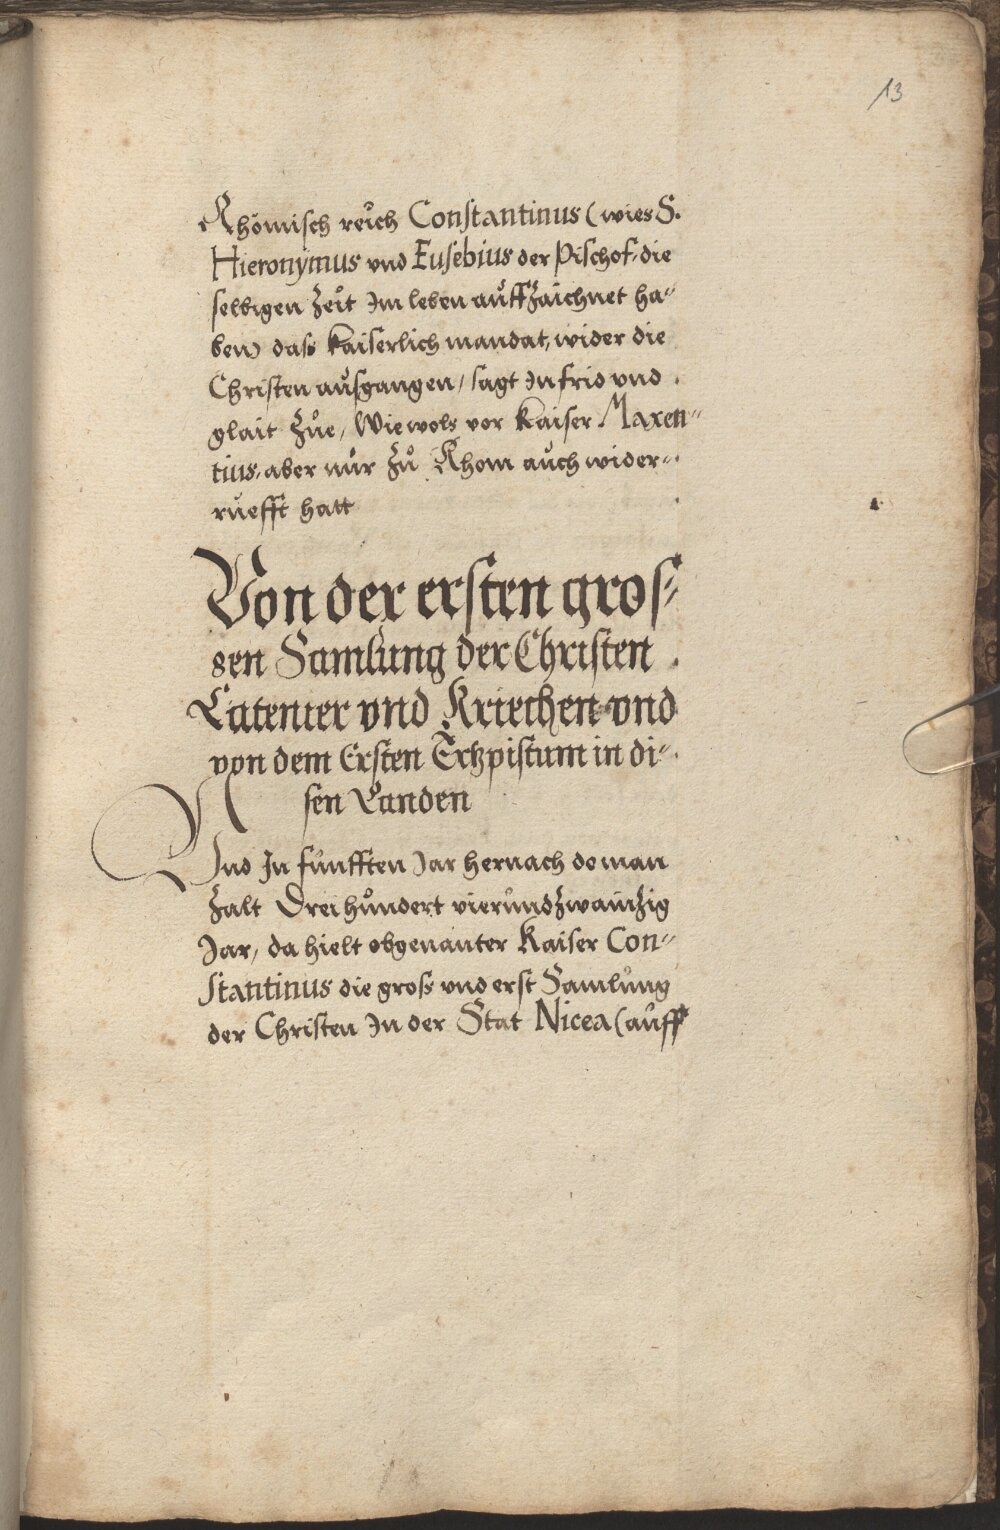 13
Rhömisch reich Constantinus (wies S.
Hieronÿmus vnd Eusebius der Pischof, die
selbigen Zeit Im leben auffzaichnet ha-
ben) dass kaiserlich mandat, wider die
Christen ausgangen, sagt In frid vnd
glait Zue, Wiewols vor Kaiser Maxen-
tius, aber nur Zu Rhom auch wider-
ruefft hatt
Von der ersten gros-
sen Samlung der Christen
Latenier vnd Kriechen vnd
von dem Ersten Ertzpistum in di-
sen Landen
Vnd In funfften Jar hernach de man
Zalt Dreihundert vierundzwainzig
Jar, da hielt obgenanter Kaiser Con-
stantinus die gross vnd erst Samlung
der Christen In der Stat Nicea (auff